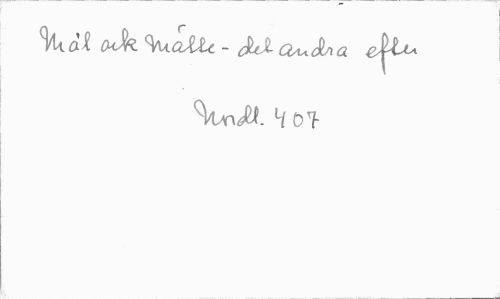 Mål ock Mässe - det andra efter
Nordl. 407